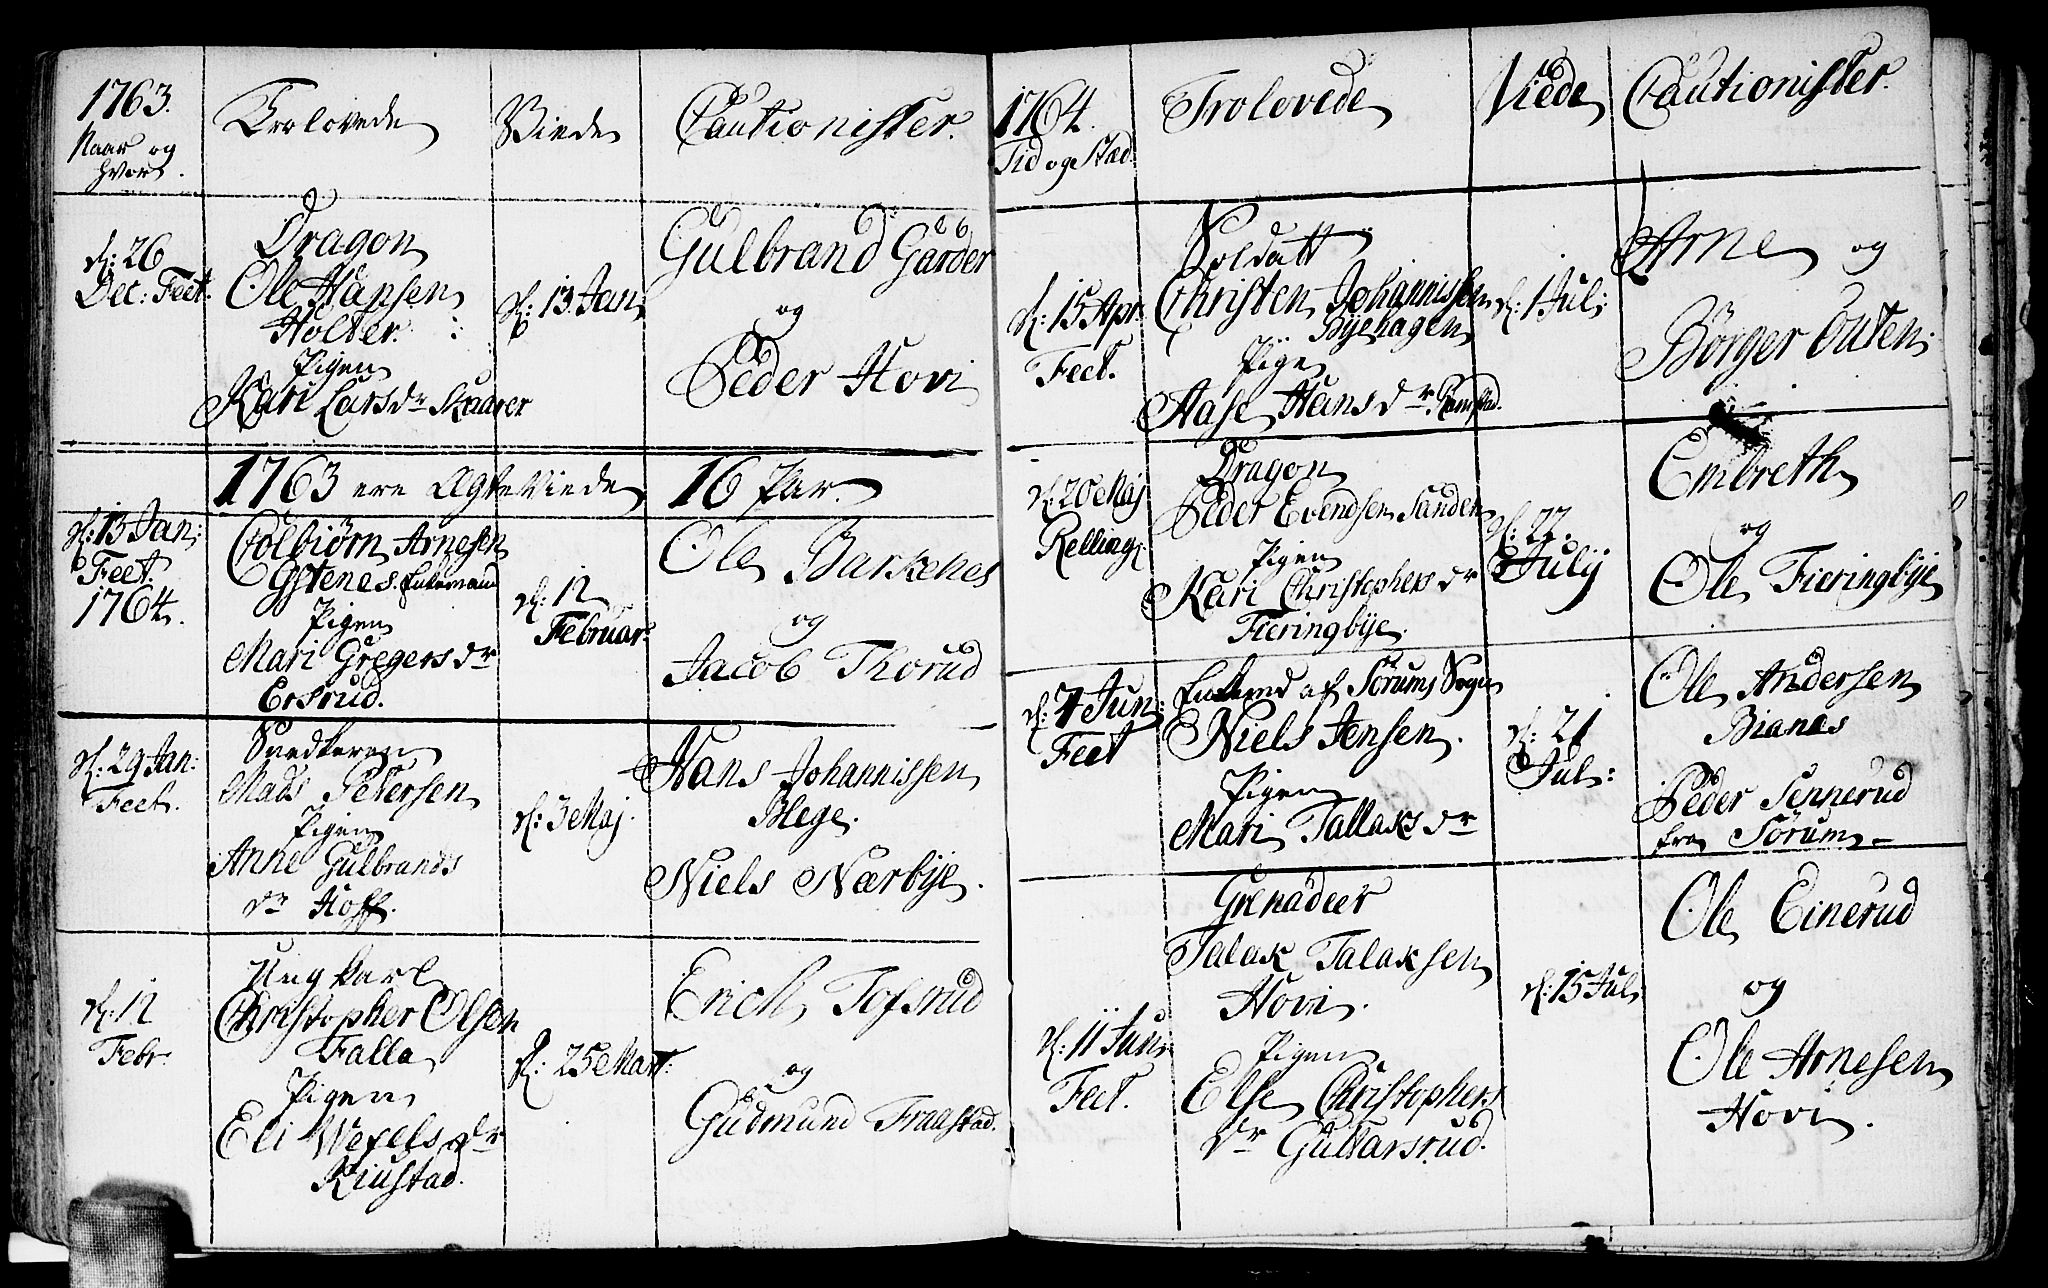 1763.
Naar og
hvor.
Trolovede
Viede
Cautionister.
d: 26
Dec: Feet.
Dragon
Ole Hansen
Holter.
Pigen
Kari Larsdr Skaarer
d: 13 Jan:
Gulbrand Garder
og
Peder Hovi
1763 ere Agte Viede 16 Par.
d: 13 Jan:
Feet.
1764.
Colbiørn Arnesen
Gstenes. Enkemand
Pigen
Mari Gregersdr
Ersrud.
d: 12
Februar:
Ole Barkenes
og
Jacob Thorud
d: 29 Jan:
Feet.
Snedkeren
Mads Petersen
Pigen
Anne Gulbrands
dr Hoff.
d: 3 Maj.
Hans Johannissen
Blege.
Niels Nærbye.
d: 12
Febr:
Ung Karl
Christopher Olsen
Falla
Pigen
Eli Wexelsdr
Kiustad.
d: 25 Mart:
Erich Tofsrud
og
Gudmund Fraustad.
1764.
Tid og Stæd.
Trolovede
Viede
Cautionister.
d: 15 Apr:
Feet.
Soldatt
Christen Johannissen
Byehagen
Pige
Aase Hansdr Ramstad.
d: 1 Jul:
Arne og
Børger Outen.
d: 20 Maj
Relling:
Dragon
Peder Evendsen Sanden
Pigen
Kari Christophersdr
Fieringbye.
d: 22.
July
Embreth
og
Ole Fieringbye
d: 7 Jun:
Feet
Enkemd af Sørums Sogn
Niels Jensen.
Pigen
Mari Tallaksdr
d: 21
Jul:
Ole Andersen
Bianes
Peder Sennerud
fra Sørum
d: 11 Jun:
Feet.
Grenadeer
Talak Talaksen
Hovi.
Pigen
Else Christophers
dr Gultarsrud.
d: 15 Jul:
Ole Einerud
og
Ole Arnesen
Hovi.